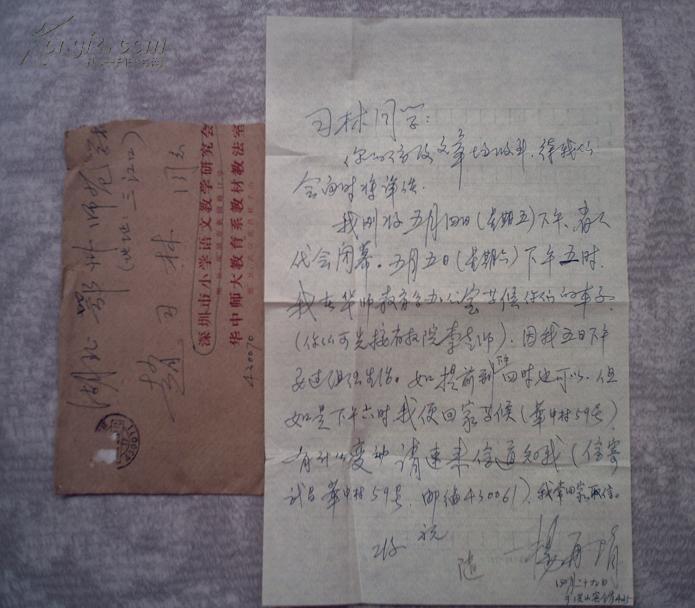 习林同学:
你的信及文章均收到,待我们
会面时将详谈。
我刚好五月四日(星期五)下午,省人
代会闭幕。五月五日(星期六)下午五时,
我在华师教育系办公室等候你们的车子
(你们可先接省教院李老师)。因我五日下午
如提前到四时也可以。但
如是下午六时我便回家等候(华中村59号)
有什么变动请速来信通知我(信寄
武昌华中村59号,邮编430061),我常回家取信。
祝
好
杨再隋
湖北鄂州师范学校
(地址:三江口)
赵习林 同志
深圳市小学语文教学研究会
华中师大教育系教材教法室
430070